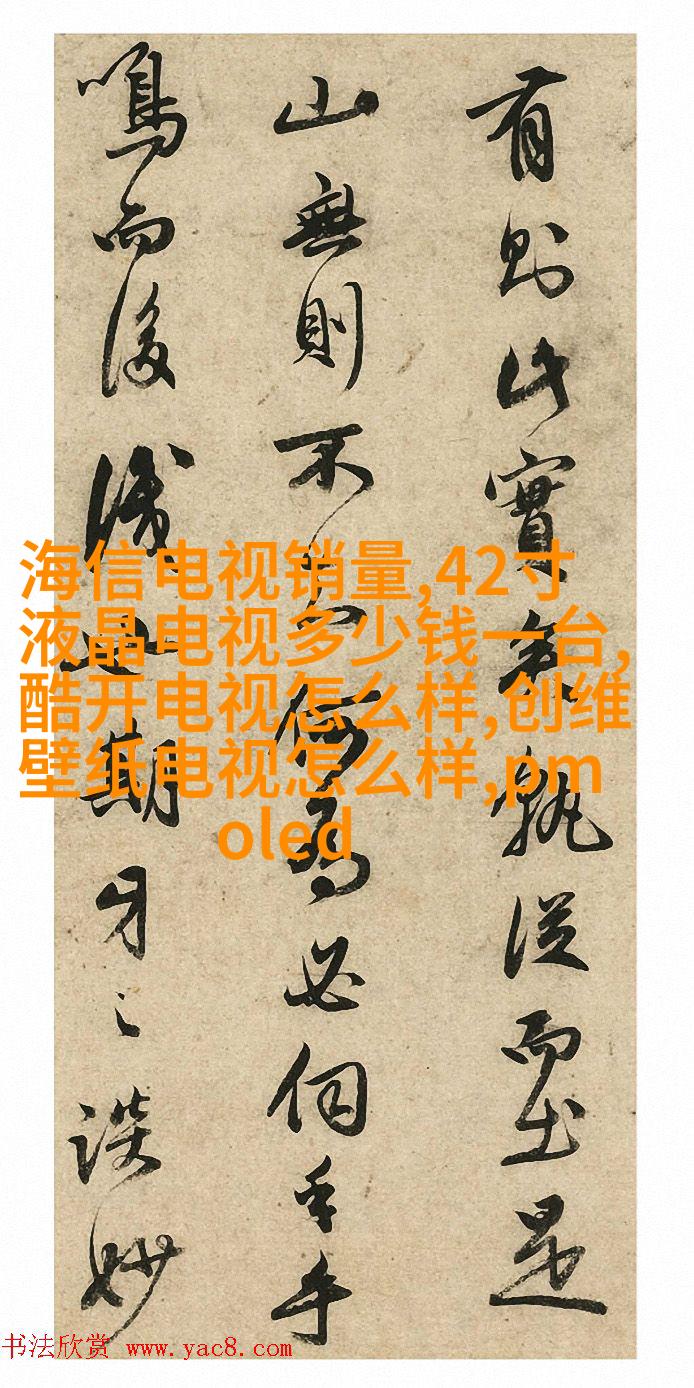 有則此實孰從而是
山無則不何為必伺手
鳴而後期牙談妙
海信电视销量,42寸
液晶电视多少钱一台,
酷开电视怎么样,创维
壁纸电视怎么样,pm
oled
书法欣赏 www.yac8.com